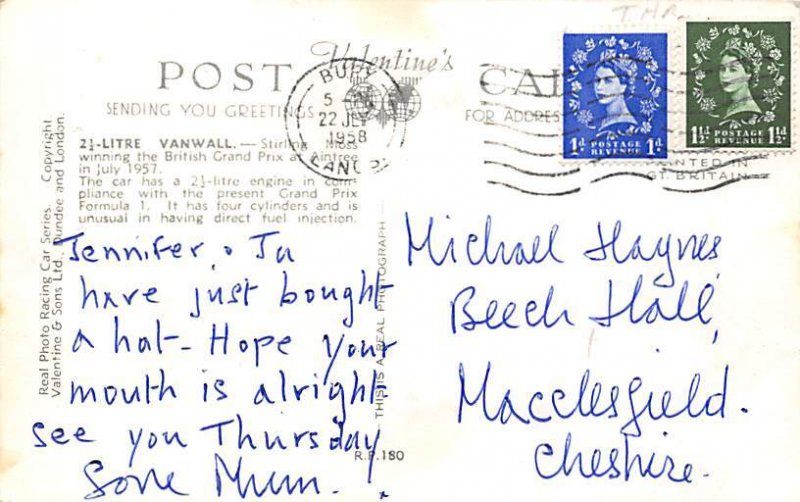 T.H.R.
Valentine's
POST CARD
SENDING YOU GREETINGS
FOR ADDRESS
BURY
5 - PM
22 JLY
1958
LANCS.
1d POSTAGE REVENUE 1d
1½d POSTAGE REVENUE 1½d
PRINTED IN
GT. BRITAIN
2½-LITRE VANWALL.—Stirling Moss
winning the British Grand Prix at Aintree
in July 1957.
The car has a 2½-litre engine in com-
pliance with the present Grand Prix
Formula 1. It has four cylinders and is
unusual in having direct fuel injection.
Real Photo Racing Car Series. Copyright.
Valentine & Sons Ltd., Dundee and London.
THIS IS A REAL PHOTOGRAPH
R.P.180
Jennifer & Ju
have just bought
a hat - Hope your
mouth is alright
see you Thursday
Mum.
Michael Haynes
Beech Hall,
Macclesfield.
Cheshire.